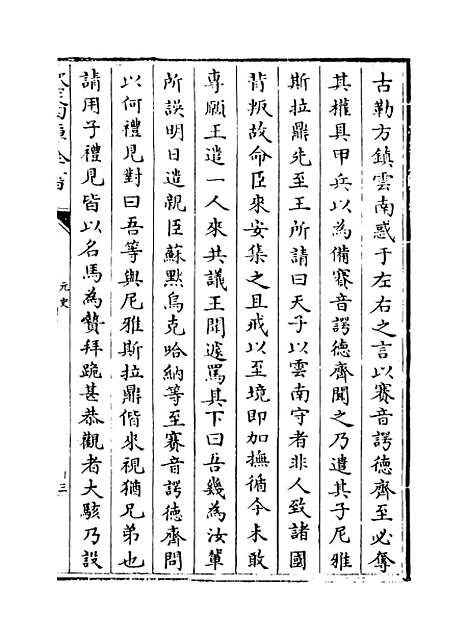 古勒方鎮雲南惑于左右之言以賽音諤德齊至必奪
其權具甲兵以為備賽音諤德齊聞之乃遣其子尼雅
斯拉鼎先至王所請曰天子以雲南守者非人致諸國
背叛故命臣來安集之且戒以至境即加撫循今未敢
專願王遣一人來共議王聞遽罵其下曰吾幾為汝軰
所誤明日遣親臣蘇黙烏克哈納等至賽音諤德齊問
以何禮見對曰吾等與尼雅斯拉鼎偕來視猶兄弟也
請用子禮見皆以名馬為贄拜跪甚恭觀者大駭乃設
元史
三